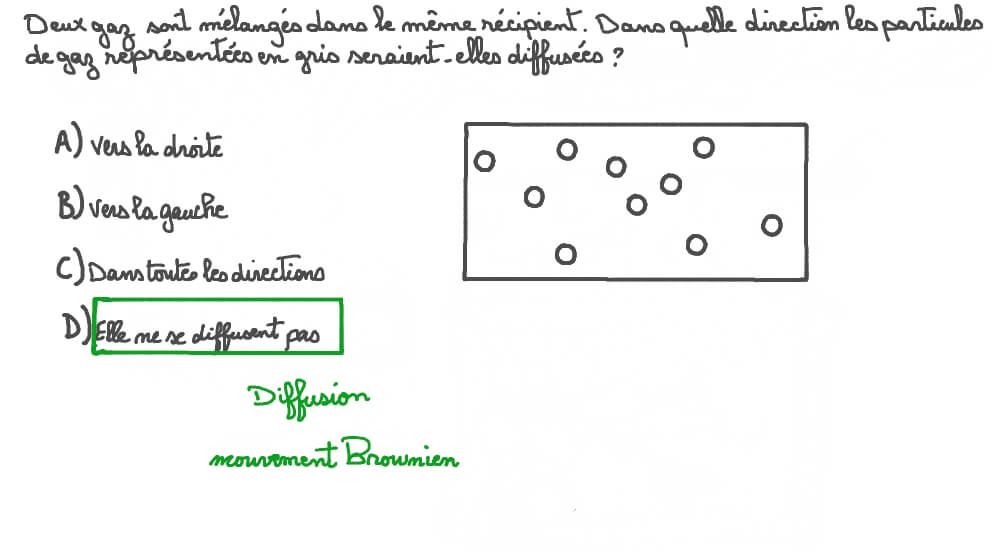 Deux gaz sont mélangés dans le même récipient. Dans quelle direction les particules
de gaz représentées en gris seraient-elles diffusées ?
A) vers la droite
B) vers la gauche
C) Dans toutes les directions
D) Elle ne se diffusent pas
Diffusion
mouvement Brownien